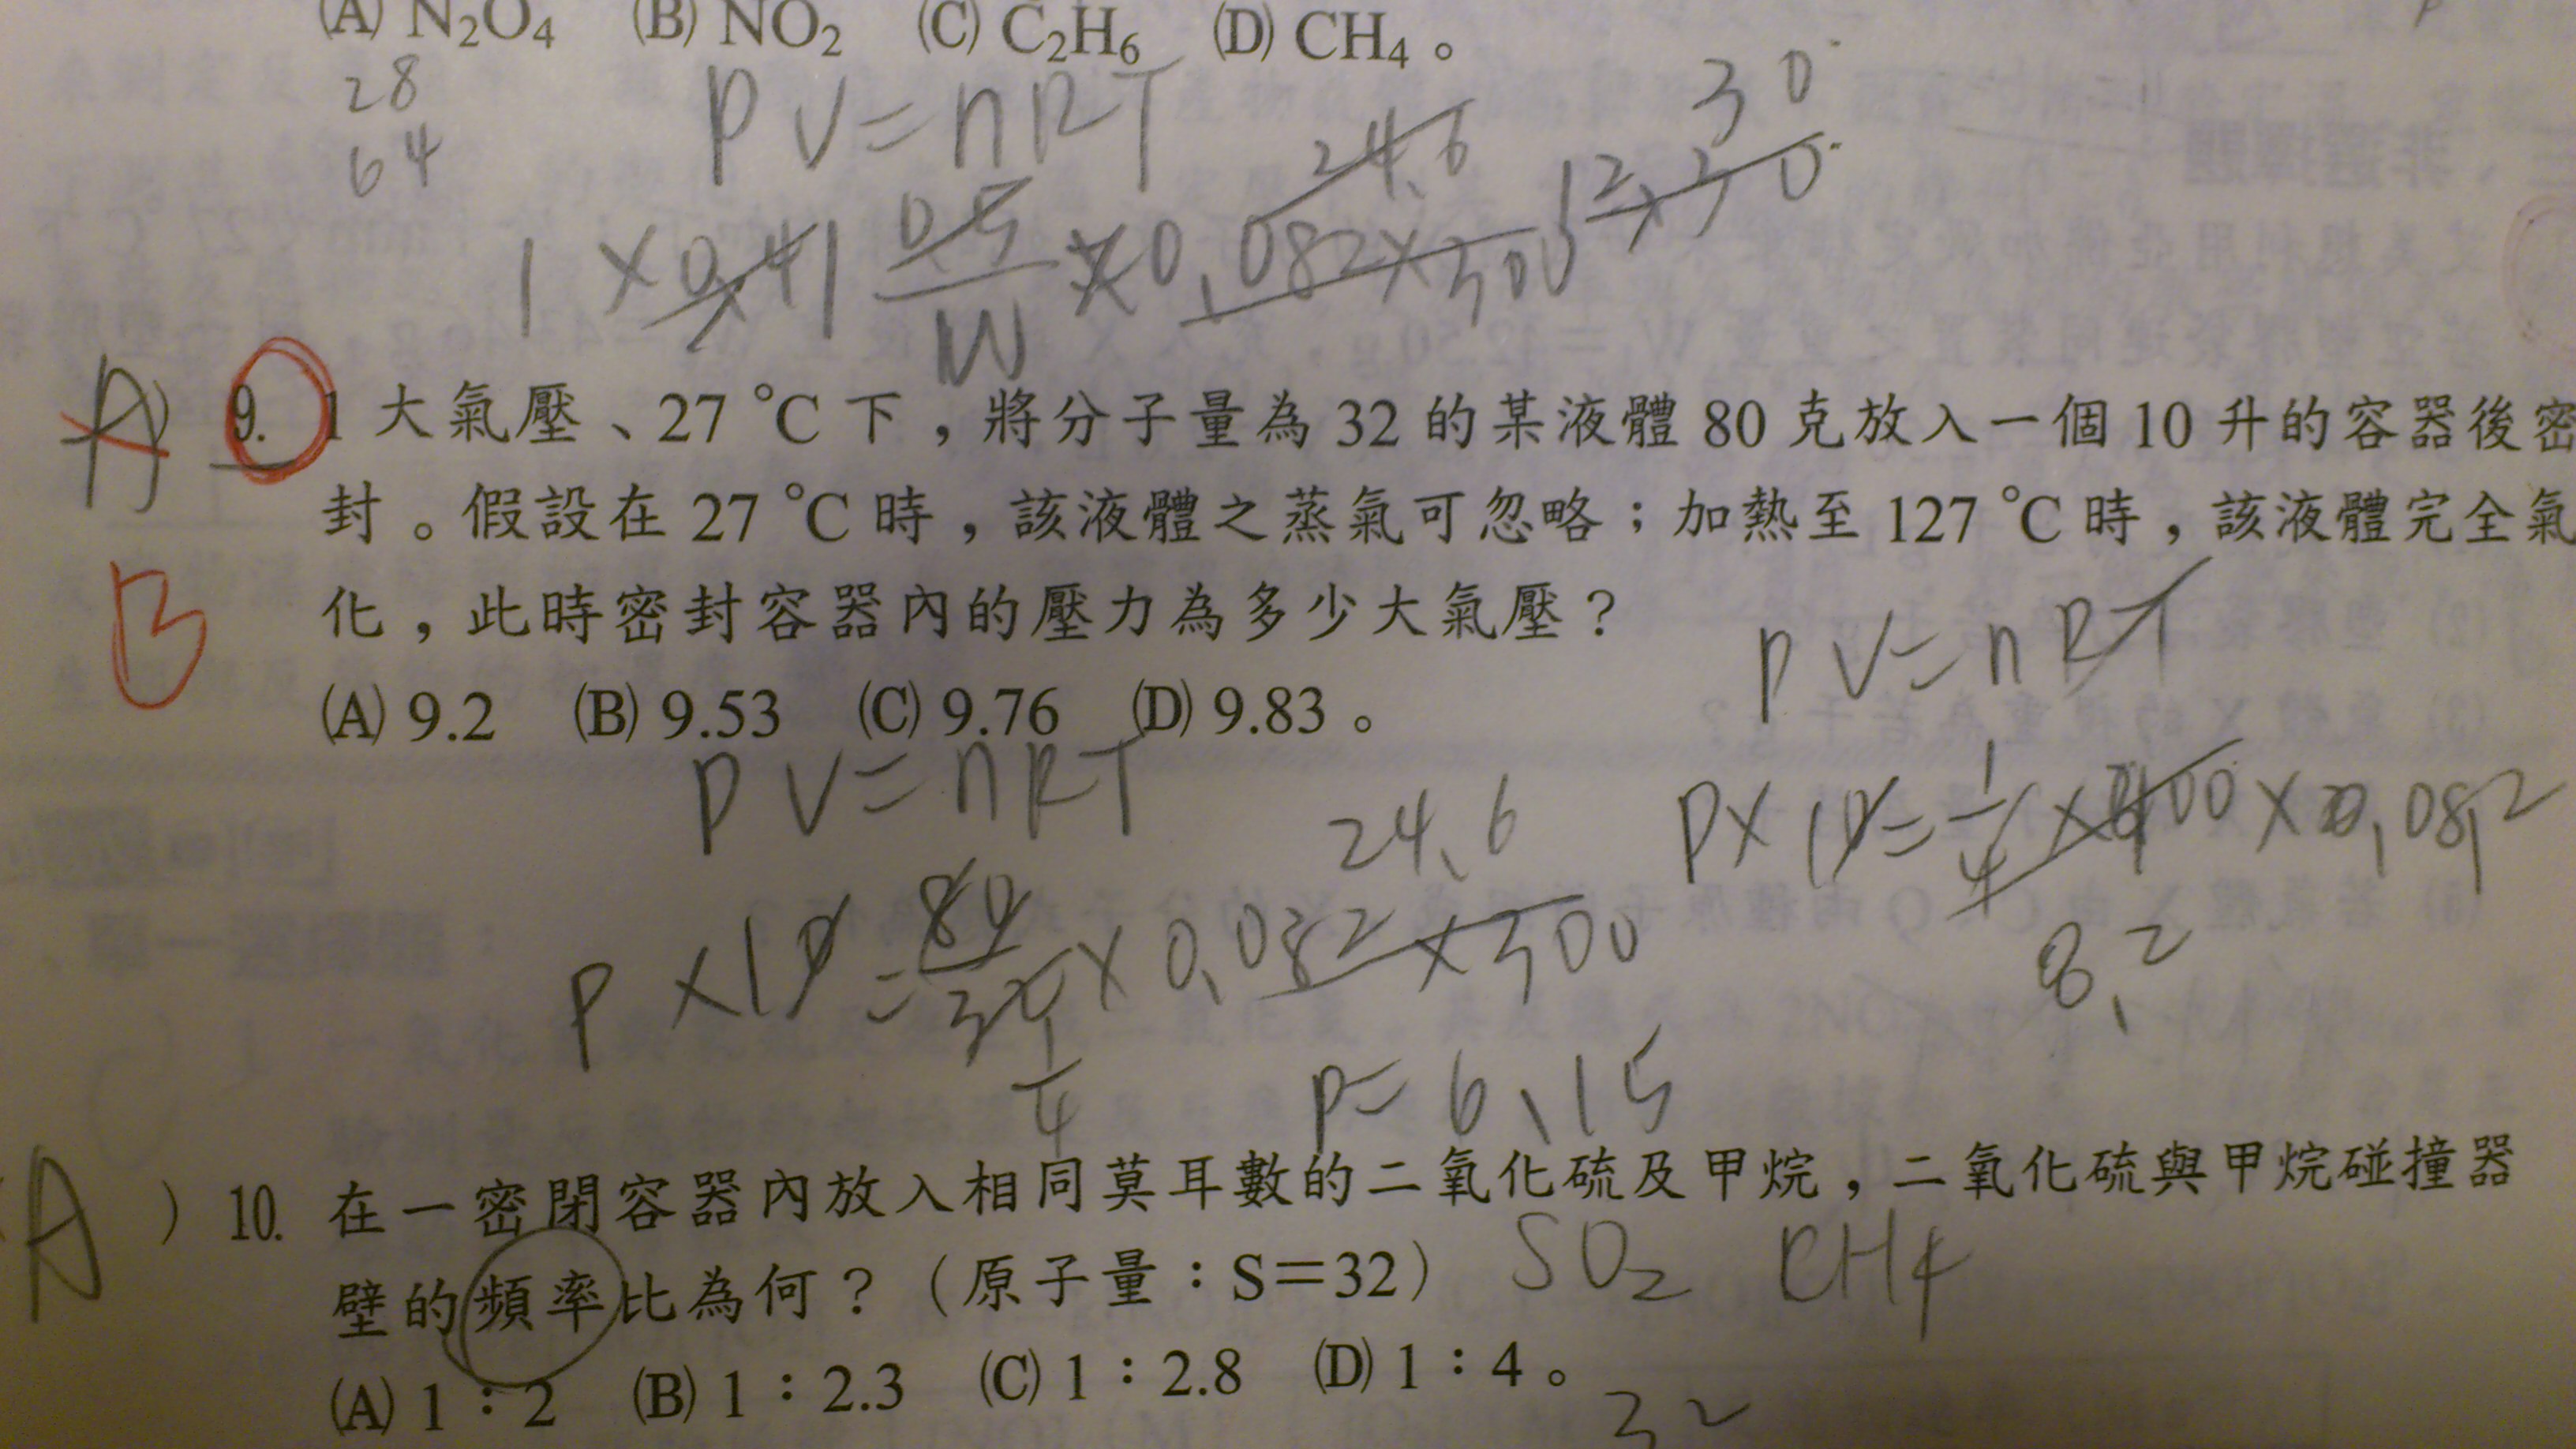 (A) N₂O₄ (B) NO₂ (C) C₂H₆ (D) CH₄。
28
64
PV=nRT
24.6
30
1×0.41 0.5/W ×0.082×300
A
9. 1 大氣壓、27 ℃ 下，將分子量為 32 的某液體 80 克放入一個 10 升的容器後密
封。假設在 27 ℃ 時，該液體之蒸氣可忽略；加熱至 127 ℃ 時，該液體完全氣
B
化，此時密封容器內的壓力為多少大氣壓？
PV=nRT
(A) 9.2 (B) 9.53 (C) 9.76 (D) 9.83。
PV=nRT
24.6
P×10=1/4×400×0.082
P×10=80/32×0.082×300
8.2
1/4
P=6.15
A ) 10. 在一密閉容器內放入相同莫耳數的二氧化硫及甲烷，二氧化硫與甲烷碰撞器
壁的頻率比為何？（原子量：S＝32） SO₂ CH₄
(A) 1：2 (B) 1：2.3 (C) 1：2.8 (D) 1：4。
32